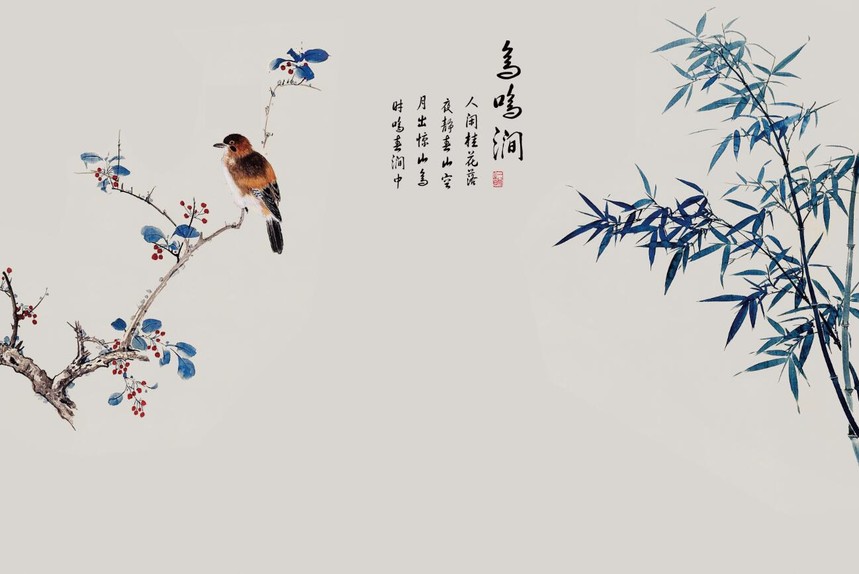 鸟鸣涧
人闲桂花落
夜静春山空
月出惊山鸟
时鸣春涧中